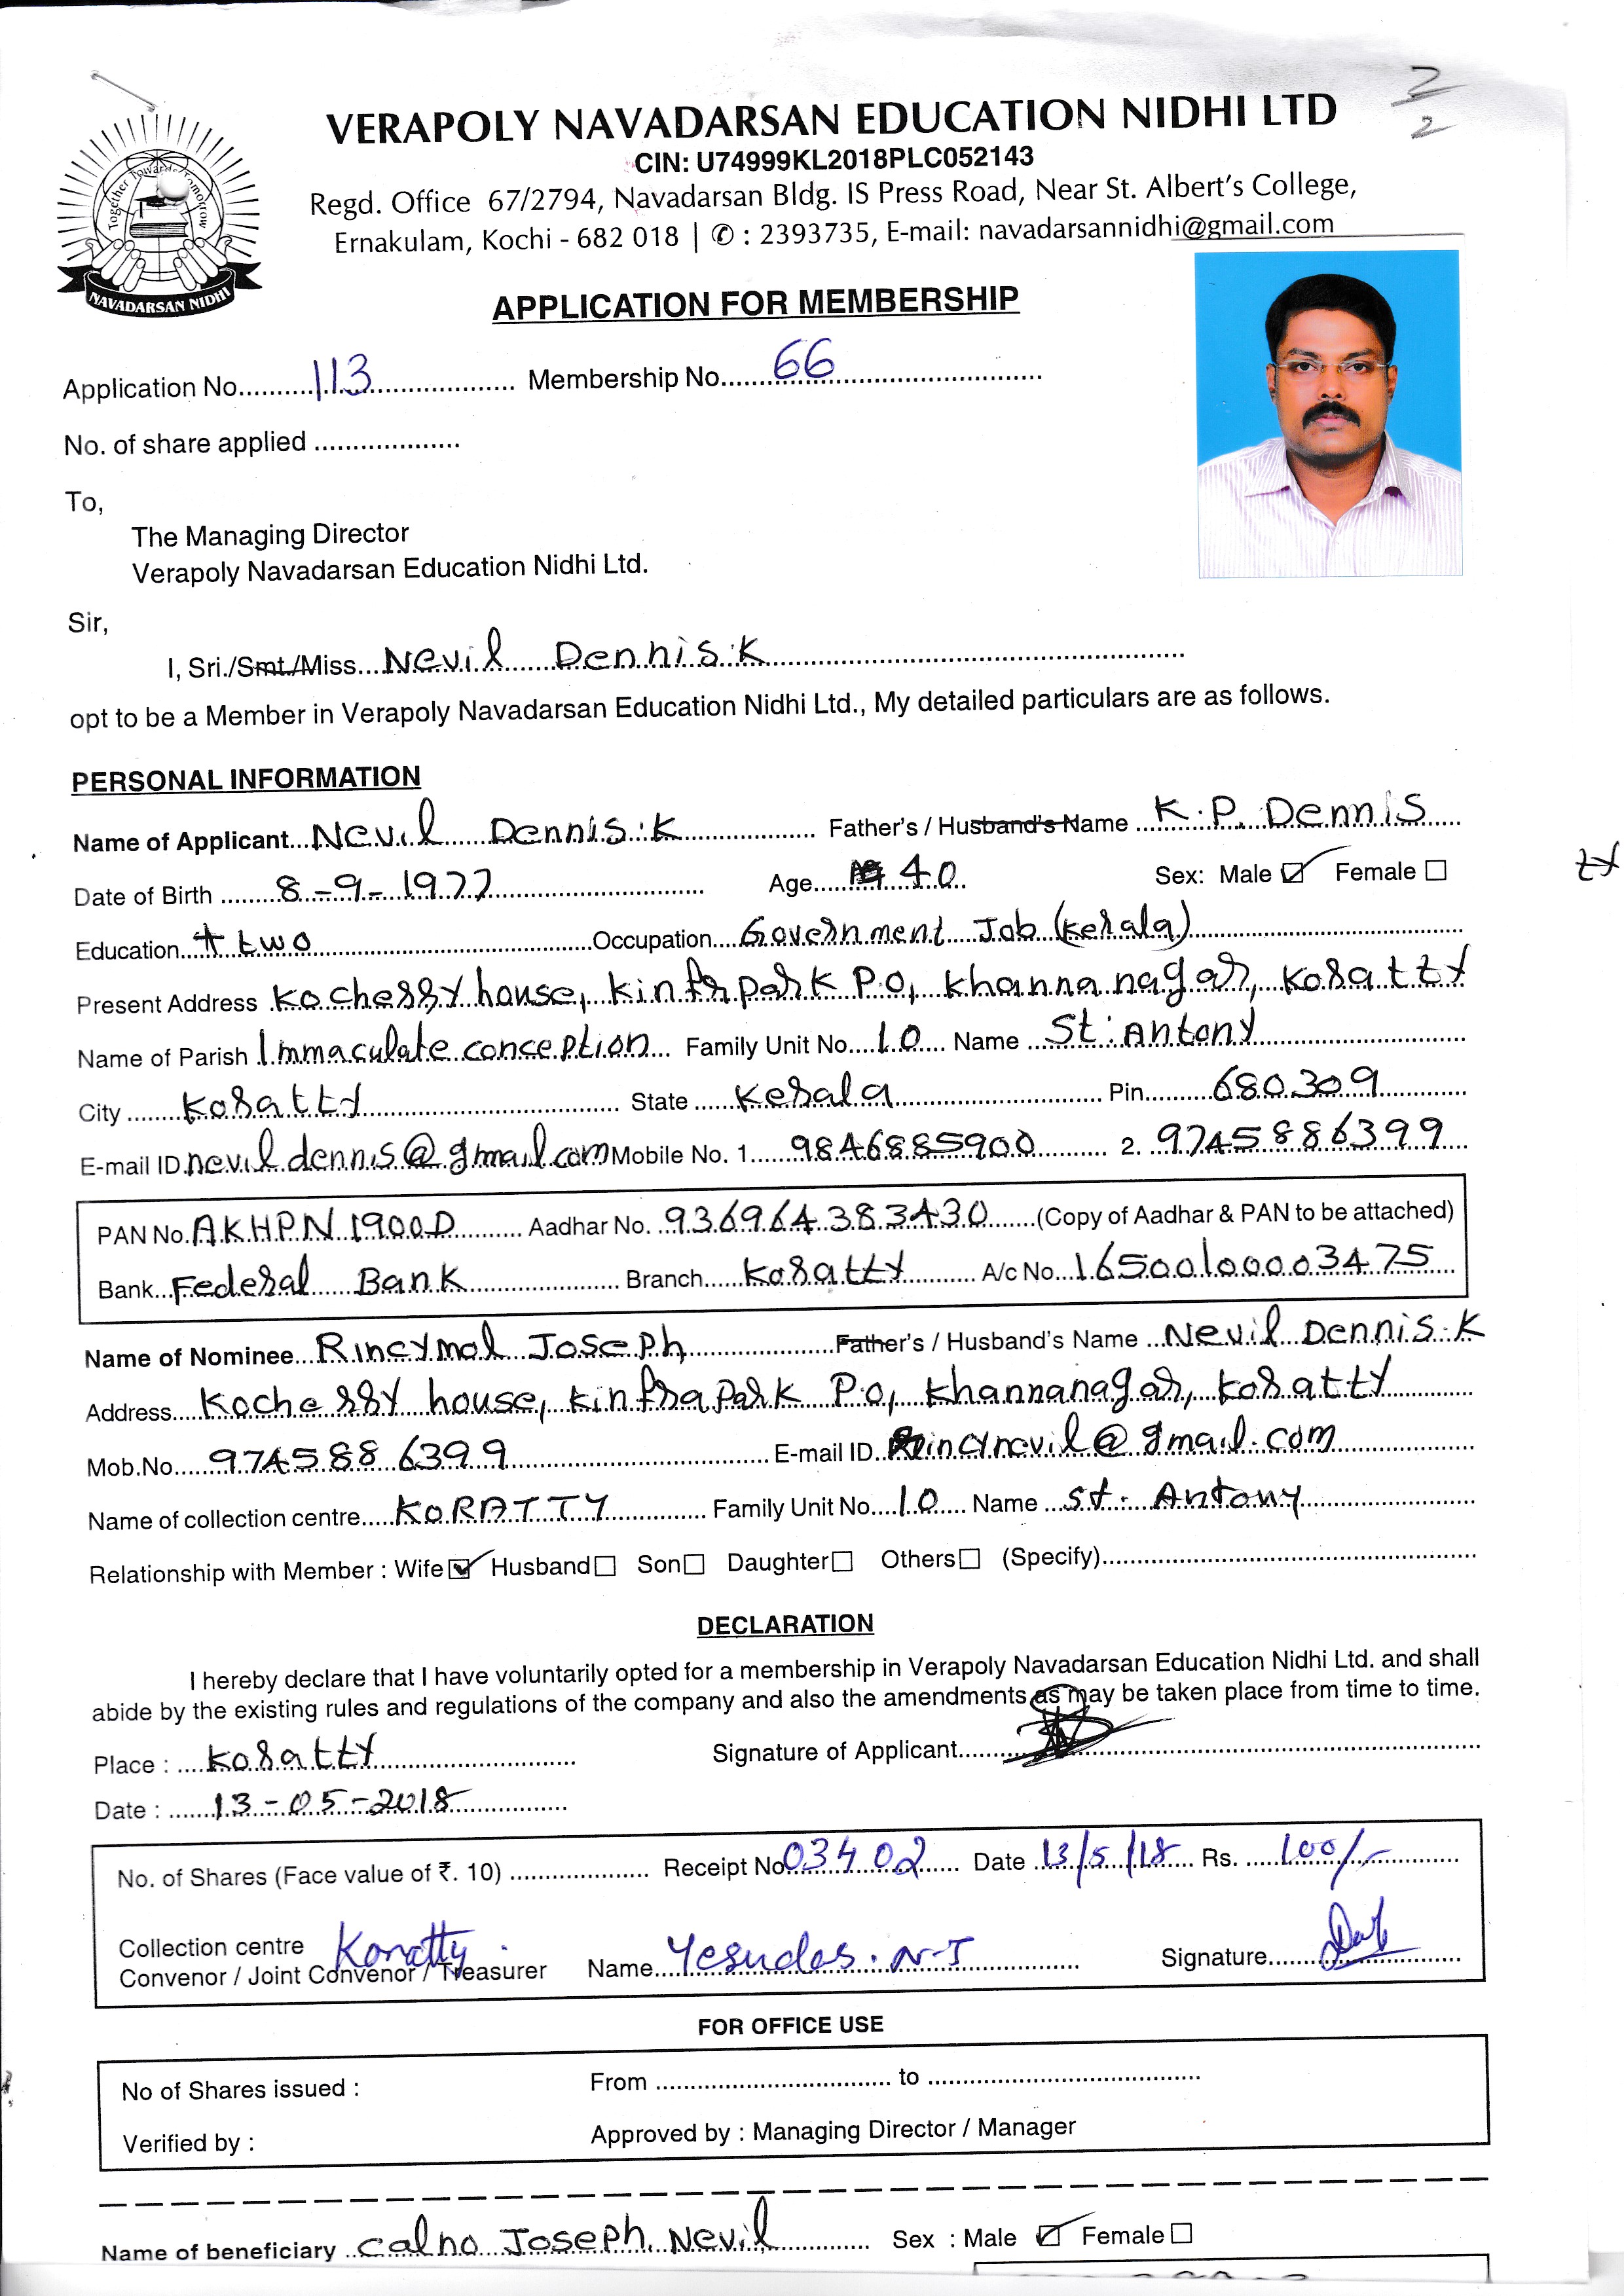 VERAPOLY NAVADARSAN EDUCATION NIDHI LTD
CIN: U74999KL2018PLC052143
Regd. Office 67/2794, Navadarsan Bldg. IS Press Road, Near St. Albert's College,
Ernakulam, Kochi - 682 018 | ✆ : 2393735, E-mail: navadarsannidhi@gmail.com
Together Towards Tomorrow
NAVADARSAN NIDHI
2
2
APPLICATION FOR MEMBERSHIP
Application No. 113 Membership No. 66
No. of share applied
To,
The Managing Director
Verapoly Navadarsan Education Nidhi Ltd.
Sir,
I, Sri./Smt./Miss. Nevil Dennis.K
opt to be a Member in Verapoly Navadarsan Education Nidhi Ltd., My detailed particulars are as follows.
PERSONAL INFORMATION
Name of Applicant Nevil Dennis.K Father's / Husband's Name K.P. Dennis
Date of Birth 8-9-1977 Age 40 Sex: Male ☑ Female ☐
Education + two Occupation Government Job (Kerala)
Present Address Kocherry house, kinfra park P.O, Khanna nagar, Koratty
Name of Parish Immaculate conception Family Unit No. 10 Name St. Antony
City Koratty State Kerala Pin 680309
E-mail ID nevil.dennis@gmail.com Mobile No. 1. 9846885900 2. 9745886399
PAN No. AKHPN1900D Aadhar No. 936964383430 (Copy of Aadhar & PAN to be attached)
Bank Federal Bank Branch Koratty A/c No. 16500100003475
Name of Nominee Rincymol Joseph Father's / Husband's Name Nevil Dennis.K
Address Kocherry house, kinfra park P.O, Khannanagar, Koratty
Mob.No. 9745886399 E-mail ID rincynevil@gmail.com
Name of collection centre KORATTY Family Unit No. 10 Name St. Antony
Relationship with Member : Wife ☑ Husband ☐ Son ☐ Daughter ☐ Others ☐ (Specify)
DECLARATION
I hereby declare that I have voluntarily opted for a membership in Verapoly Navadarsan Education Nidhi Ltd. and shall
abide by the existing rules and regulations of the company and also the amendments as may be taken place from time to time.
Place : Koratty Signature of Applicant
Date : 13-05-2018
No. of Shares (Face value of ₹. 10) Receipt No. 03402 Date 13/5/18 Rs. 100/-
Collection centre Koratty
Convenor / Joint Convenor / Treasurer Name Yesudas. N-J Signature
FOR OFFICE USE
No of Shares issued : From to
Verified by : Approved by : Managing Director / Manager
Name of beneficiary Calno Joseph Nevil Sex : Male ☑ Female ☐